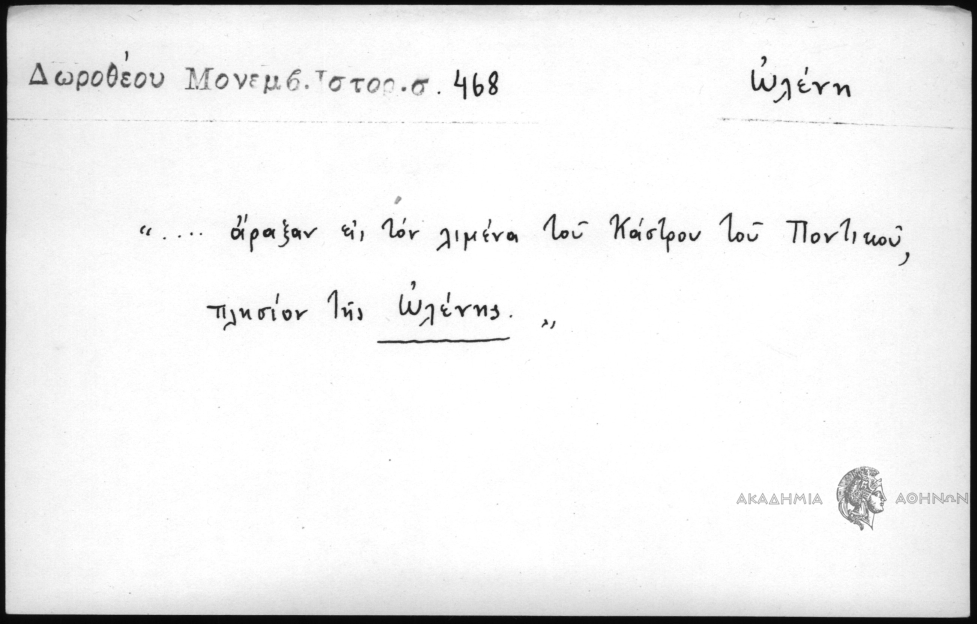 Δωροθέου Μονεμβ. Ἱστορ. σ. 468
Ὠλένη
“.... ἄραξαν εἰς τόν λιμένα τοῦ Κάστρου τοῦ Ποντικοῦ,
πλησίον τῆς Ὠλένης. „
ΑΚΑΔΗΜΙΑ ΑΘΗΝΩΝ